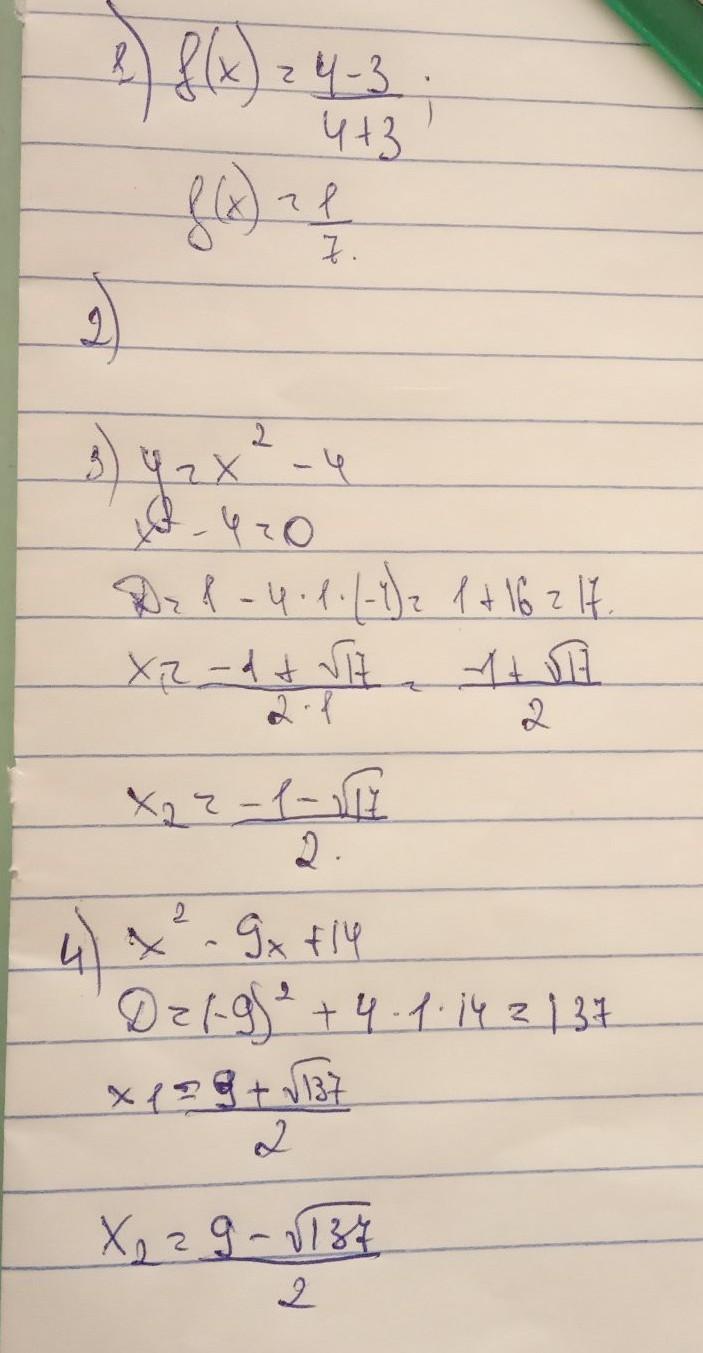 1) f(x) = (4-3)/(4+3);
f(x) = 1/7.
2)
3) y = x² - 4
x² - 4 = 0
D = 1 - 4·1·(-4) = 1 + 16 = 17.
x₁ = (-1 + √17)/(2·1) = (-1 + √17)/2
x₂ = (-1 - √17)/2.
4) x² - 9x + 14
D = (-9)² + 4·1·14 = 137
x1 = (9 + √137)/2
x₂ = (9 - √137)/2